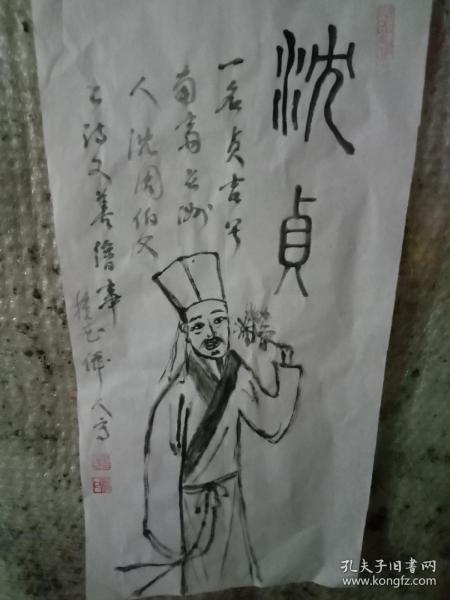 沈貞
一名貞吉号
南齋長洲
人沈周伯父
工詩文善繪事
孔夫子旧书网
www.kongfz.com